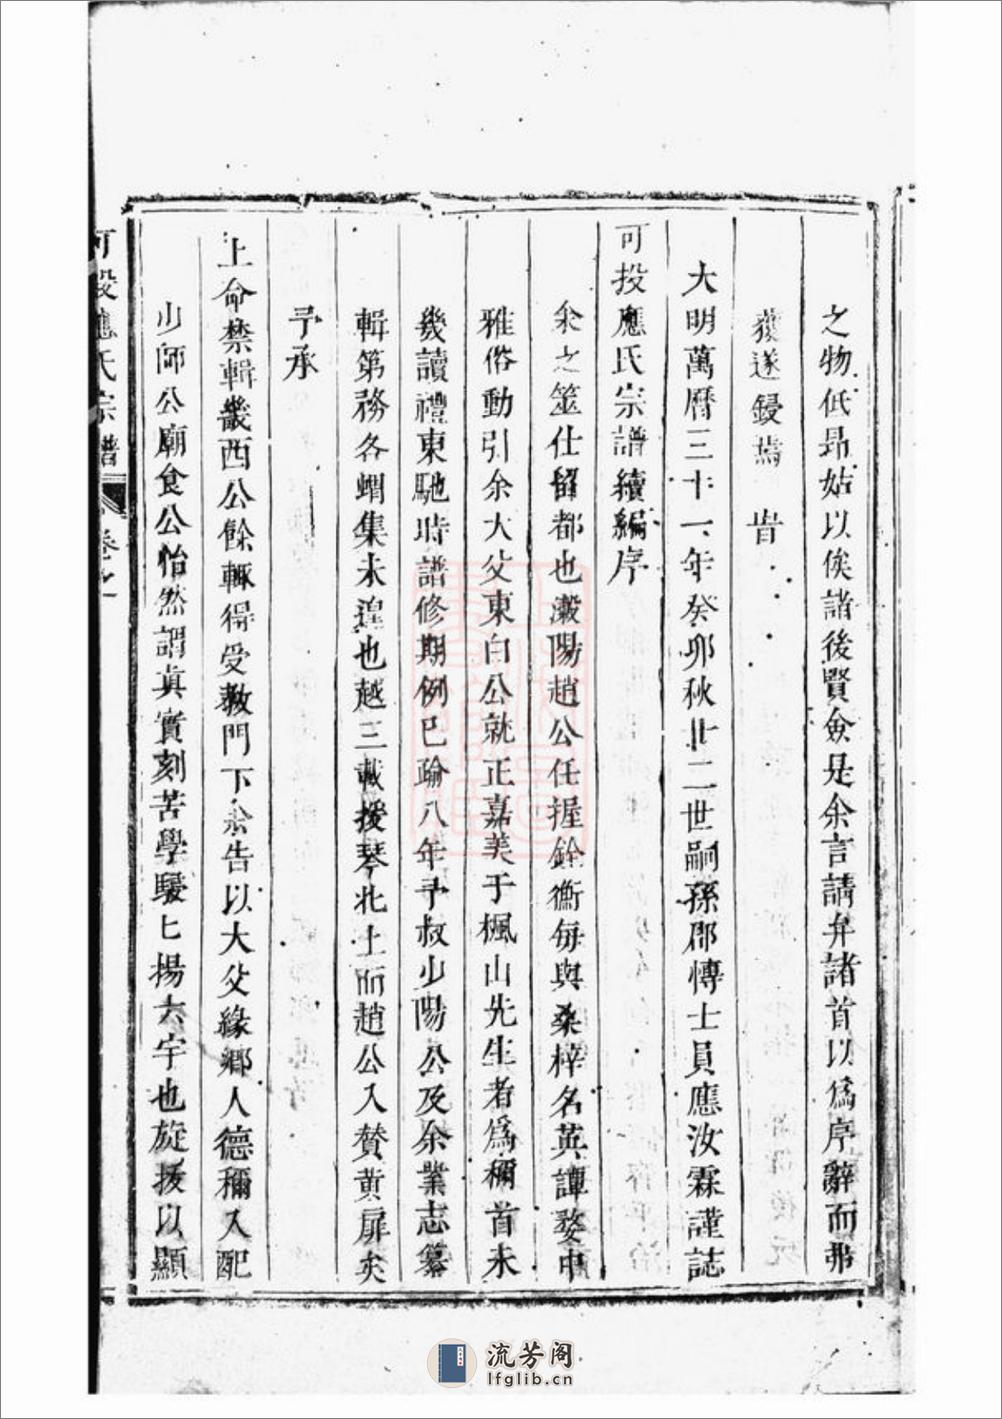 之物低昂姑以俟諸後賢僉是余言請弁諸首以爲序辭而弗
獲遂鋟焉 旹
大明萬曆三十一年癸卯秋廿二世嗣孫郡愽士員應汝霖謹誌
可投應氏宗譜續編序
余之筮仕留都也瀫陽趙公任握銓衡每與桑梓名英譚婺中
雅俗動引余大父東白公就正嘉美于楓山先生者爲稱首未
幾讀禮東馳時譜修期例已踰八年予叔少陽公及余業志纂
輯第務各蝟集未遑也越三載援琴北上而趙公入賛黄扉矣
予承
上命禁輯畿西公餘輒得受敎門下公告以大父緣鄉人德稱入配
少師公廟食公怡然謂眞實刻苦學騣匕揚六宇也旋援以顯
可投應氏宗譜 卷之一
流芳阁
lfglib.cn